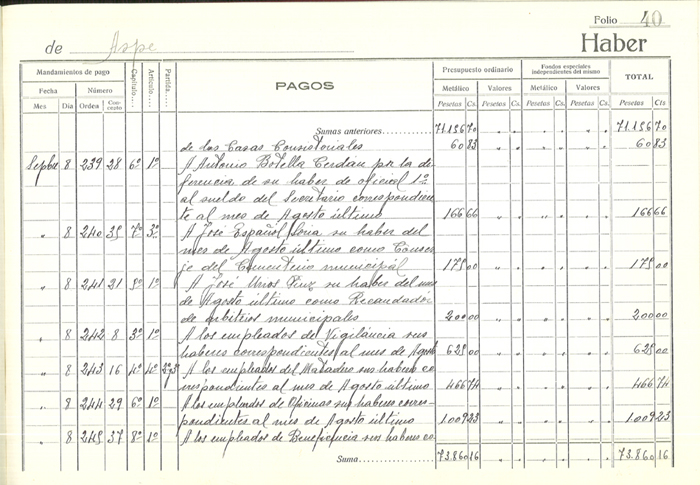 Folio 40
de Aspe Haber
Mandamientos de pago Capítulo Artículo Partida PAGOS Presupuesto ordinario Fondos especiales independientes del mismo TOTAL
Fecha Número Metálico Valores Metálico Valores
Mes Día Orden Con-cepto Pesetas Cs. Pesetas Cs. Pesetas Cs. Pesetas Cs. Pesetas Cts
Sumas anteriores 71.156 70 " " " " " " 71.156 70
de las Casas Consistoriales 60 83 " " " " " " 60 83
Sepbre 8 239 28 6º 1º A Antonio Botella Cerdán por la di-
ferencia de su haber de oficial 1º
al sueldo del Secretario correspondien-
te al mes de Agosto último 166 66 " " " " " " 166 66
" 8 240 35 7º 3º A José Español Soria su haber del
mes de Agosto último como Conser-
je del Cementerio municipal 175 00 " " " " " " 175 00
" 8 241 21 5º 1º A José su haber del mes
de Agosto último como Recaudador
de arbitrios municipales 200 00 " " " " " " 200 00
" 8 242 8 3º 1º A los empleados de Vigilancia sus
haberes correspondientes al mes de Agosto 625 00 " " " " " " 625 00
" 8 243 16 4º 4º A los empleados del Matadero sus haberes co-
rrespondientes al mes de Agosto último 466 74 " " " " " " 466 74
" 8 244 29 6º 1º A los empleados de Oficinas sus haberes corres-
pondientes al mes de Agosto último 1.009 23 " " " " " " 1.009 23
" 8 245 37 8º 1º A los empleados de Beneficencia sus haberes co-
Suma 73.860 16 " " " " " " 73.860 16